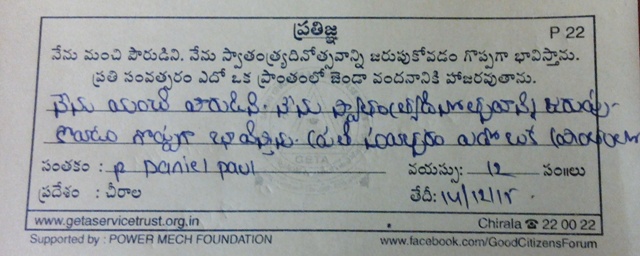 ప్రతిజ్ఞ P 22
నేను మంచి పౌరుడిని. నేను స్వాతంత్ర్యదినోత్సవాన్ని జరుపుకోవడం గొప్పగా భావిస్తాను.
ప్రతి సంవత్సరం ఎదో ఒక ప్రాంతంలో జెండా వందనానికి హాజరవుతాను.
నేను మంచి పౌరుడిని. నేను స్వాతంత్ర్యదినోత్సవాన్ని జరుపు-
కోవడం గొప్పగా భావిస్తాను. ప్రతి సంవత్సరం ఎదో ఒక
సంతకం : P Daniel paul వయస్సు: 12 సం॥లు
ప్రదేశం : చీరాల తేదీ: 14/12/15
www.getaservicetrust.org.in Chirala ☎ 22 00 22
Supported by : POWER MECH FOUNDATION www.facebook.com/GoodCitizensForum